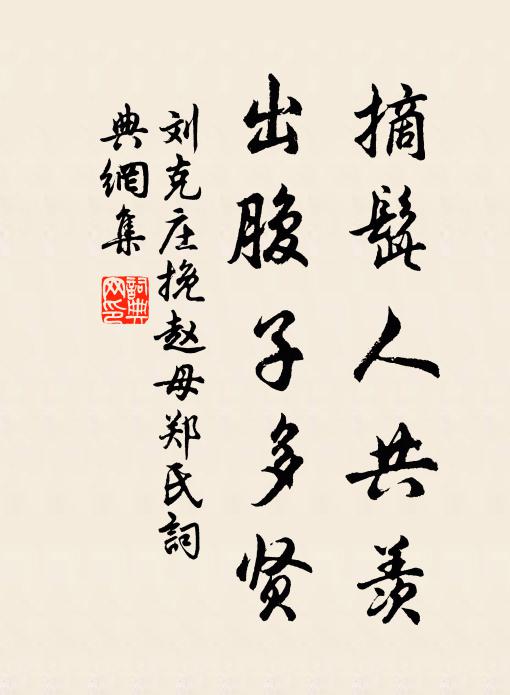 摘髭人共羡
出腹子多贤
刘克庄挽赵母郑氏詞
典網集
詞典网印